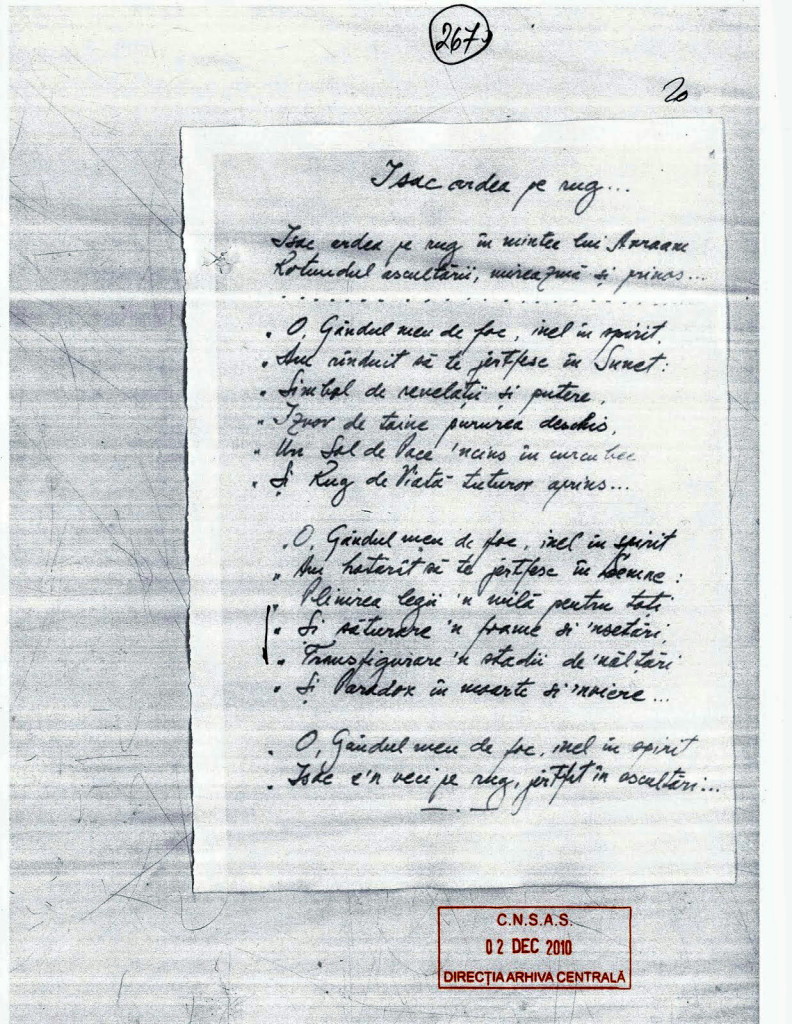 267
20
Isac ardea pe rug...
Isac ardea pe rug în mintea lui Avraam
Rotundul ascultării, mireazmă și prinos...
. . . . . . . . . . . . . . . . . . . . . . . . . . .
O, Gândul meu de foc, inel în spirit,
Am rînduit să te jertfesc în Sunet:
Simbol de revelații si putere,
Izvor de taine pururea deschis,
Un Sol de Pace 'ncins în curcubeu
Și Rug de Viață tuturor aprins...
O, Gândul meu de foc, inel în spirit
Am hotarît să te jertfesc în Semne:
Plinirea legii 'n milă pentru toti
Si săturare 'n foame si 'nsetări,
Transfigurare 'n stadii de 'nălțări
Și Paradox în moarte si 'nviere...
O, Gândul meu de foc, inel în spirit
Isac e'n veci pe rug, jertfit în ascultări...
C.N.S.A.S.
02 DEC 2010
DIRECȚIA ARHIVA CENTRALĂ